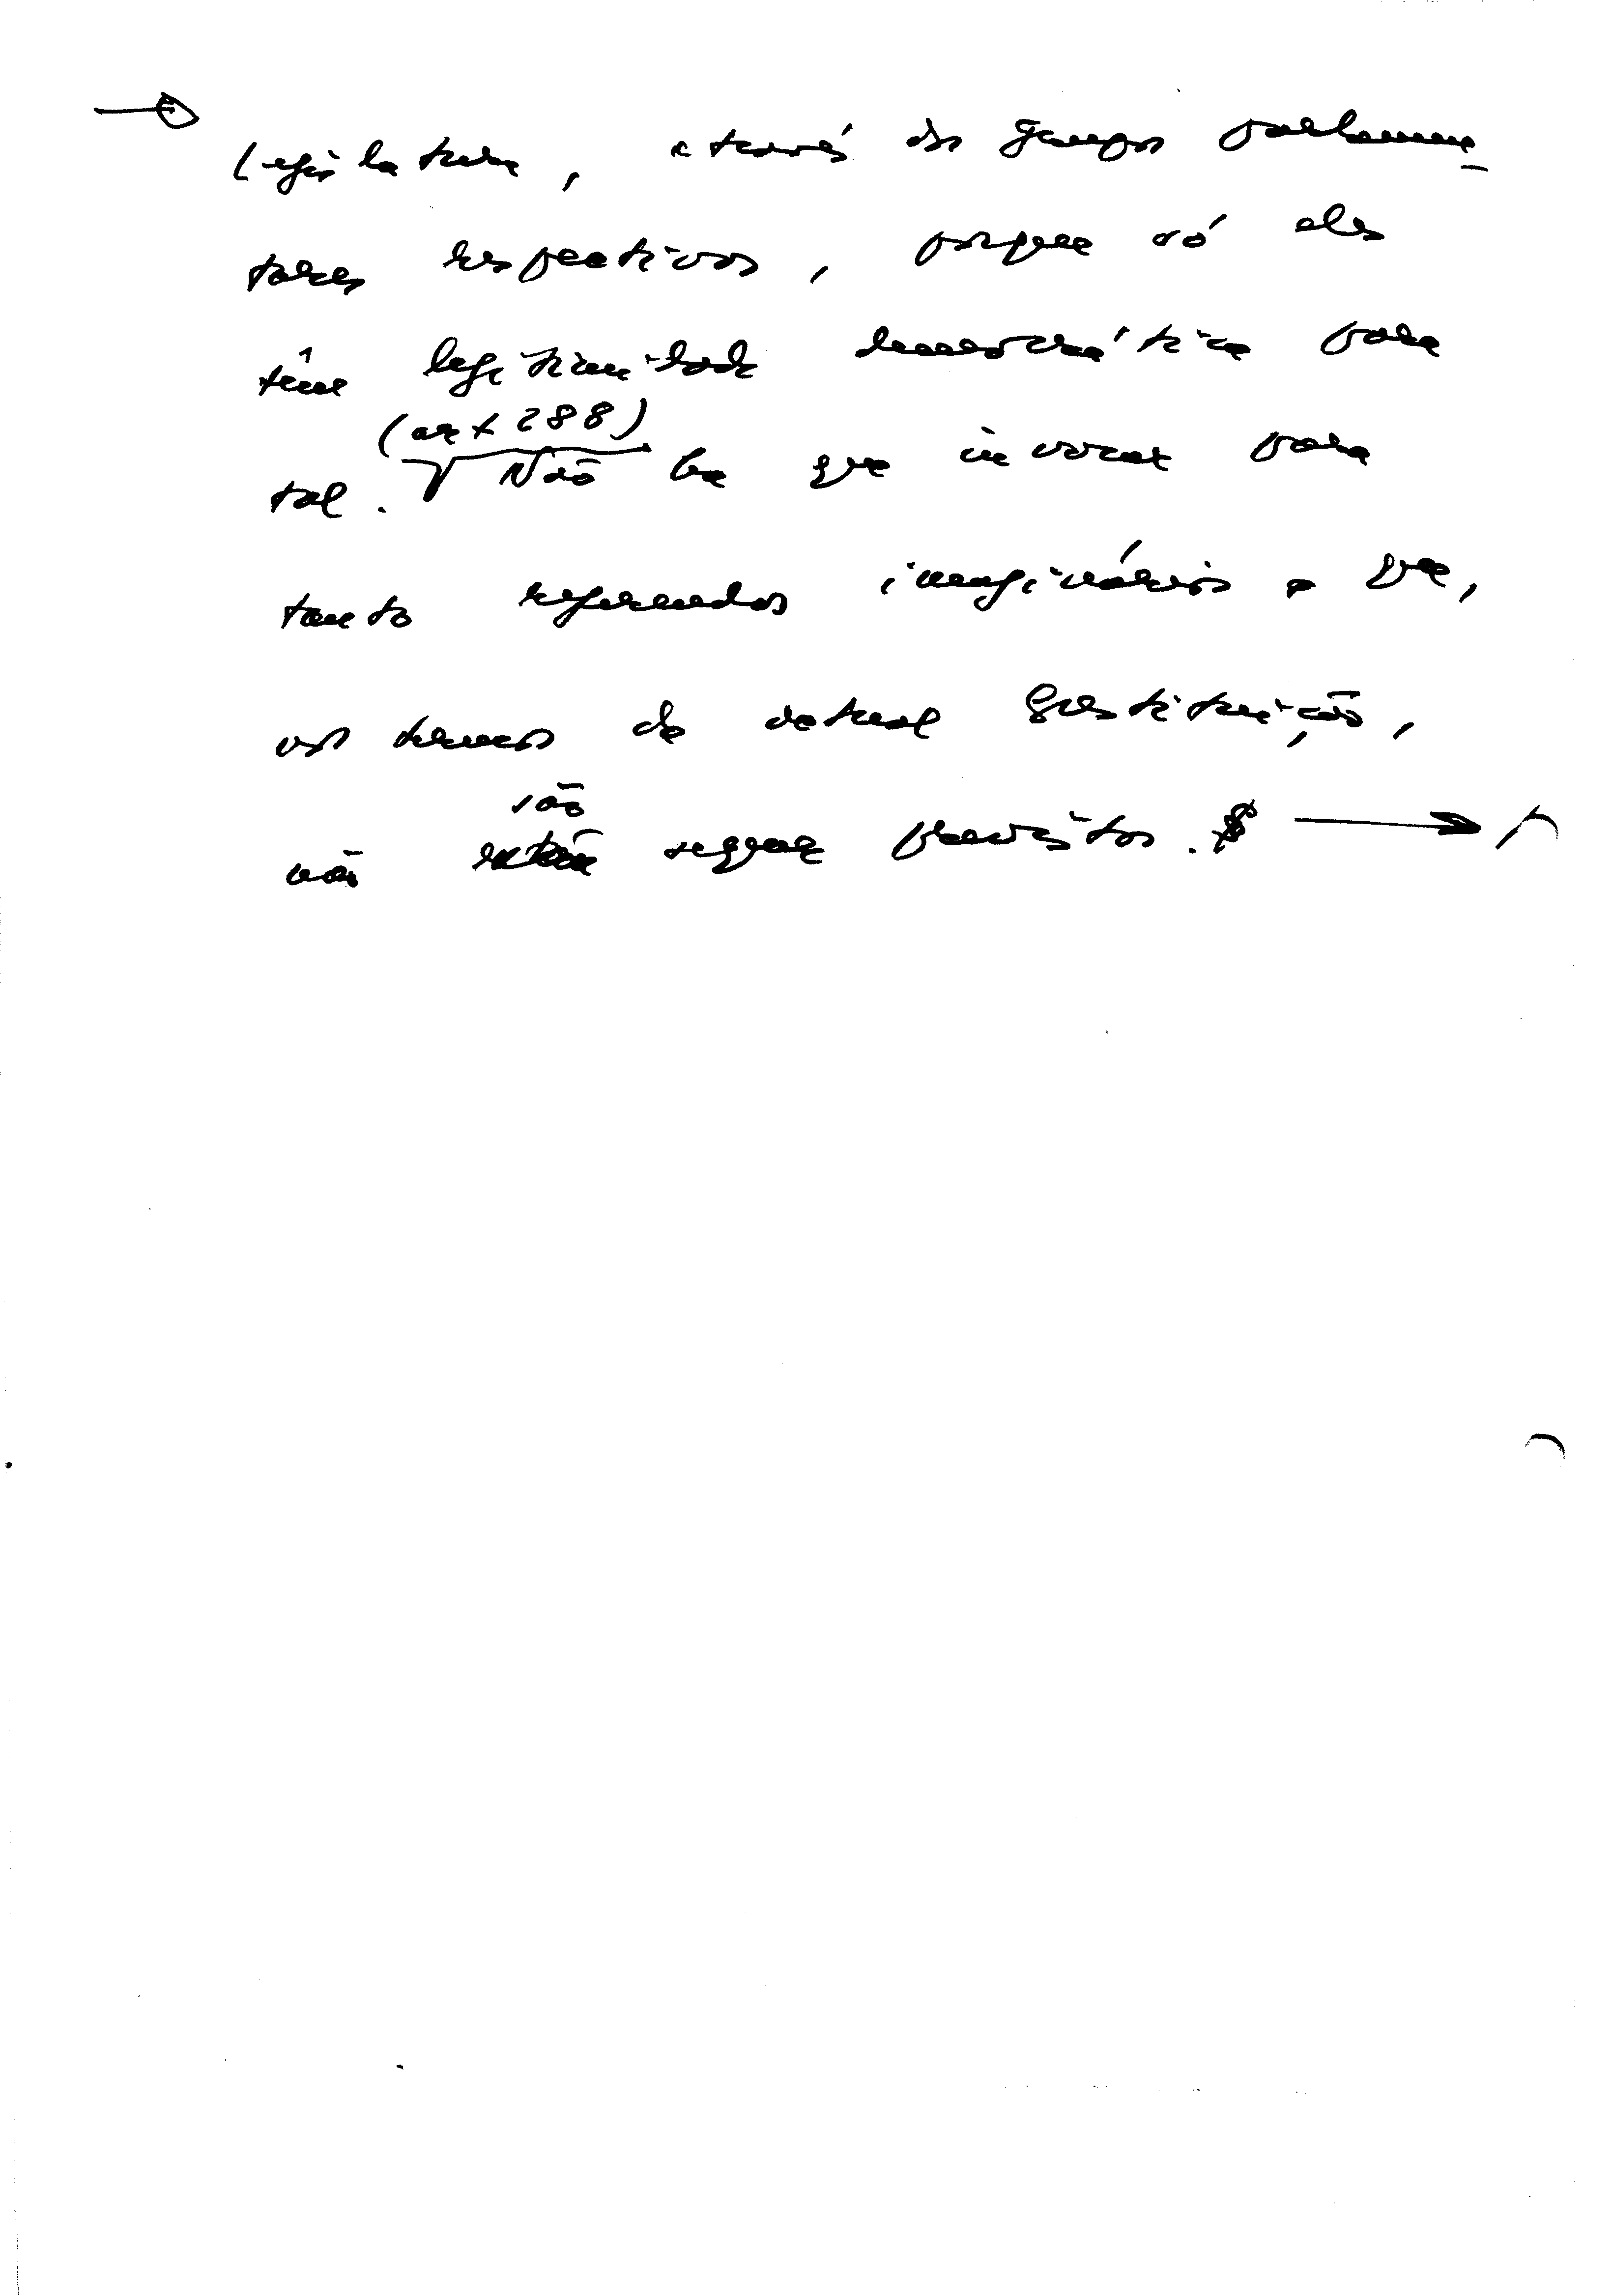 legislatura, através dos grupos parlamen-
tares respectivos, porque só eles
têm legitimidade democrática para
(art 288)
tal. Não há que invocar para
tanto referendos imaginários e que,
nos termos da actual Constituição,
são
não sequer previstos.